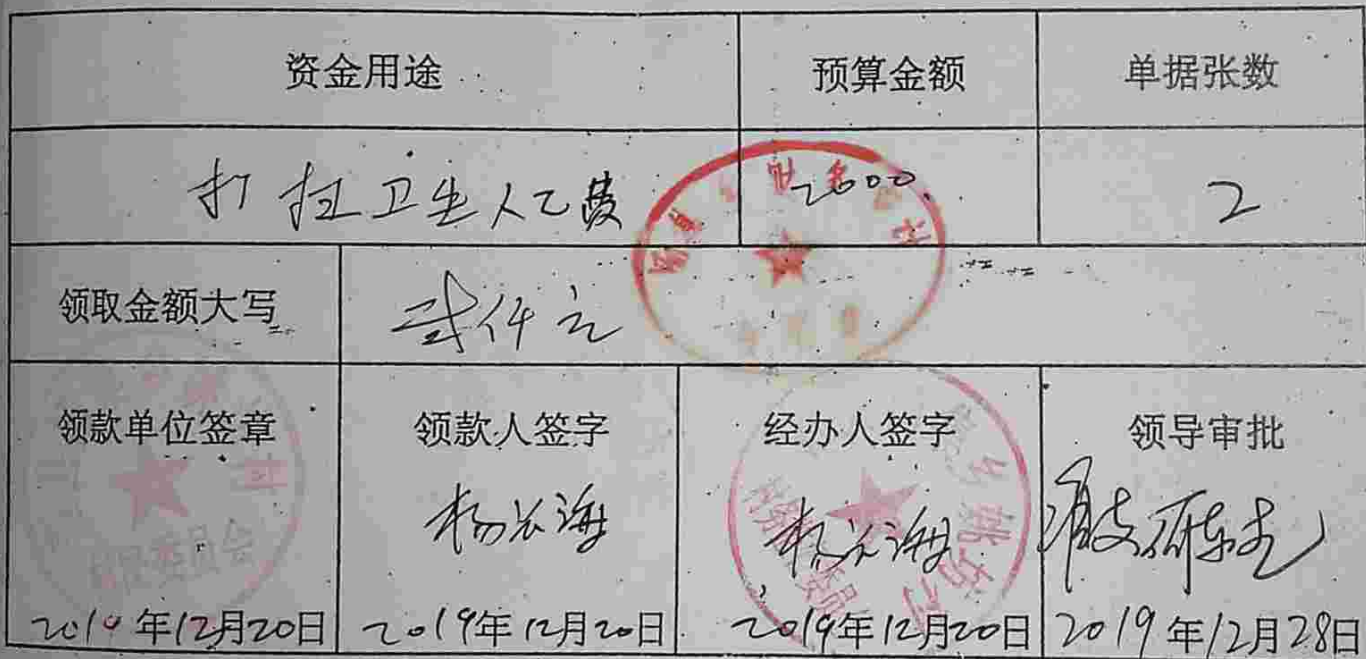 资金用途 预算金额 单据张数
打扫卫生人工费 2000. 2
领取金额大写 贰仟元
领款单位签章 领款人签字 经办人签字 领导审批
杨长海 杨长海
村民委员会
2019年12月20日 2019年12月20日 2019年12月20日 2019年12月28日